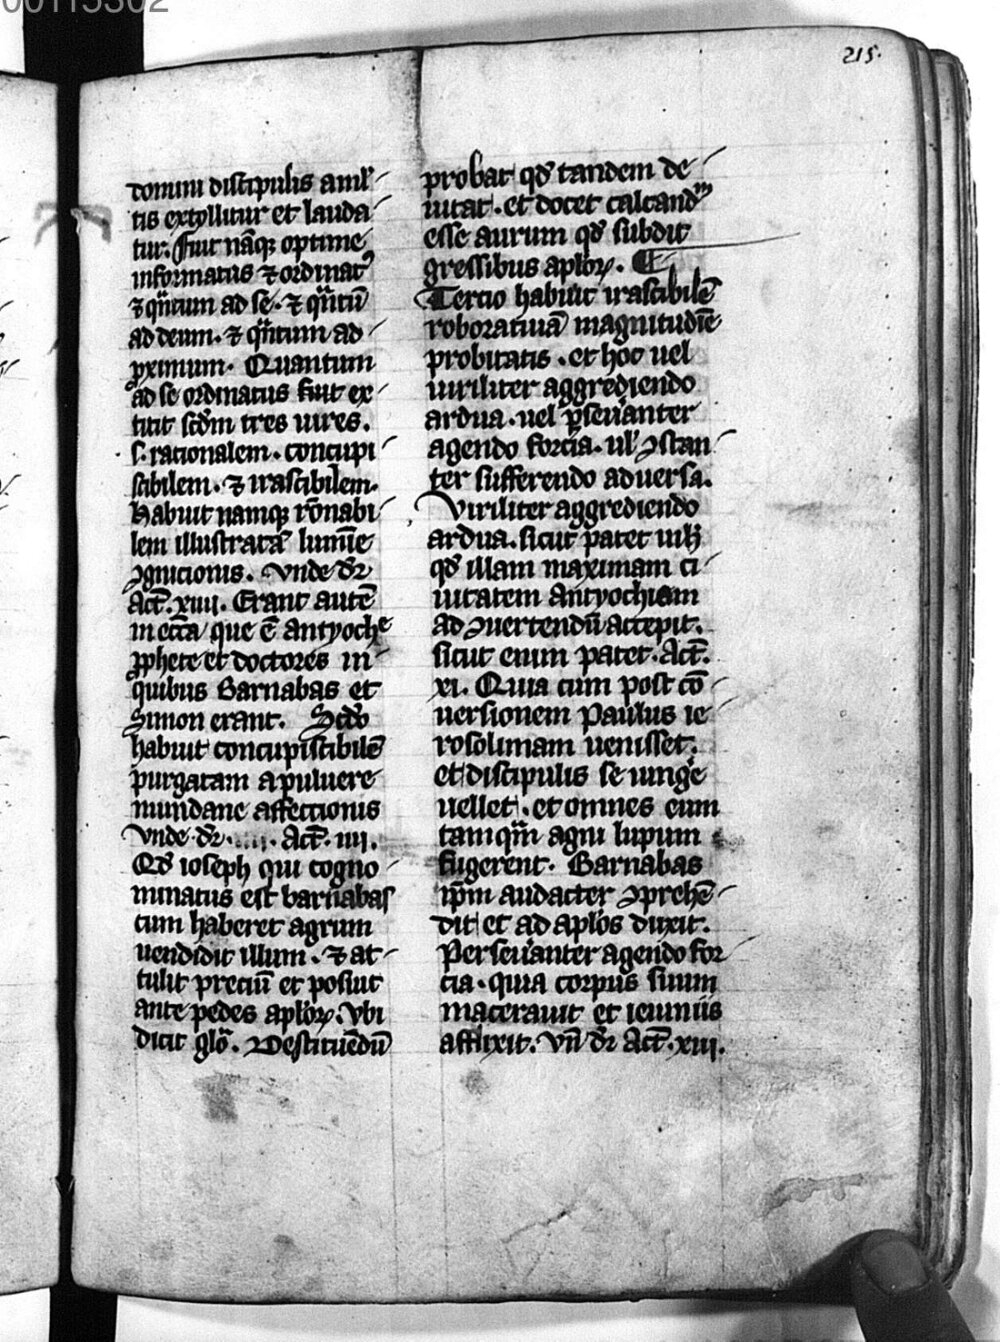 215.
domini discipulis aml̛
tis extollitur et lauda
tur. fuit nāq; optime
informatus ⁊ ordinat᷒
⁊ qn̄tum ad se. ⁊ qn̄tū
ad deum. ⁊ qn̄tum ad
ꝓximum. Quantum
ad se ordinatus fuit ex
titit scd̄m tres uires.
s. racionalem. concupi
scibilem. ⁊ irascibilem.
habuit namq; rōnabi
lem illustratā lumīe
ꝯgnicionis. vnde dr̄
act̄. xiii. Erant autē
in ecc̄a que ē antyoche
ꝓphete et doctores in
quibus Barnabas et
Simon erant. Scd̄o
habuit concupiscibilē
purgatam a puluere
mundane affectionis
vnde dr̄. Act̄. iiii.
Qd̄ ioseph qui cogno
minatus est barnabas
cum haberet agrum
uendidit illum. ⁊ at
tulit preciū et posuit
ante pedes aploꝝ. vbi
dicit glō. Destituēdū
probat qd̄ tandem de
uitat. et docet calcandū
esse aurum qd̄ subdit
gressibus aploꝝ.
Tercio habuit irascibilē
roboratiuā magnitudīe
probitatis. et hoc uel
uiriliter aggrediendo
ardua. uel ꝑseuāanter
agendo forcia. ul̛ ꝯstan
ter sufferendo aduersa.
Viriliter aggrediendo
ardua. sicut patet
qd̄ illam maximam ci
uitatem antyochiam
ad ꝯuertendū accepit.
sicut enim patet. Act̄.
xi. Quia cum post cō
uersionem paulus ie
rosolimam uenisset.
et discipulis se iungēe
uellet. et omnes eum
tamqm̄ agni lupum
fugerent. Barnabas
ip̄m audacter ꝯprehē
dit et ad aplōs duxit.
Perseuāanter agendo for
cia. quia corpus suum
macerauit et ieiuniis
afflixit. vn̄ dr̄ Act̄. xiii.